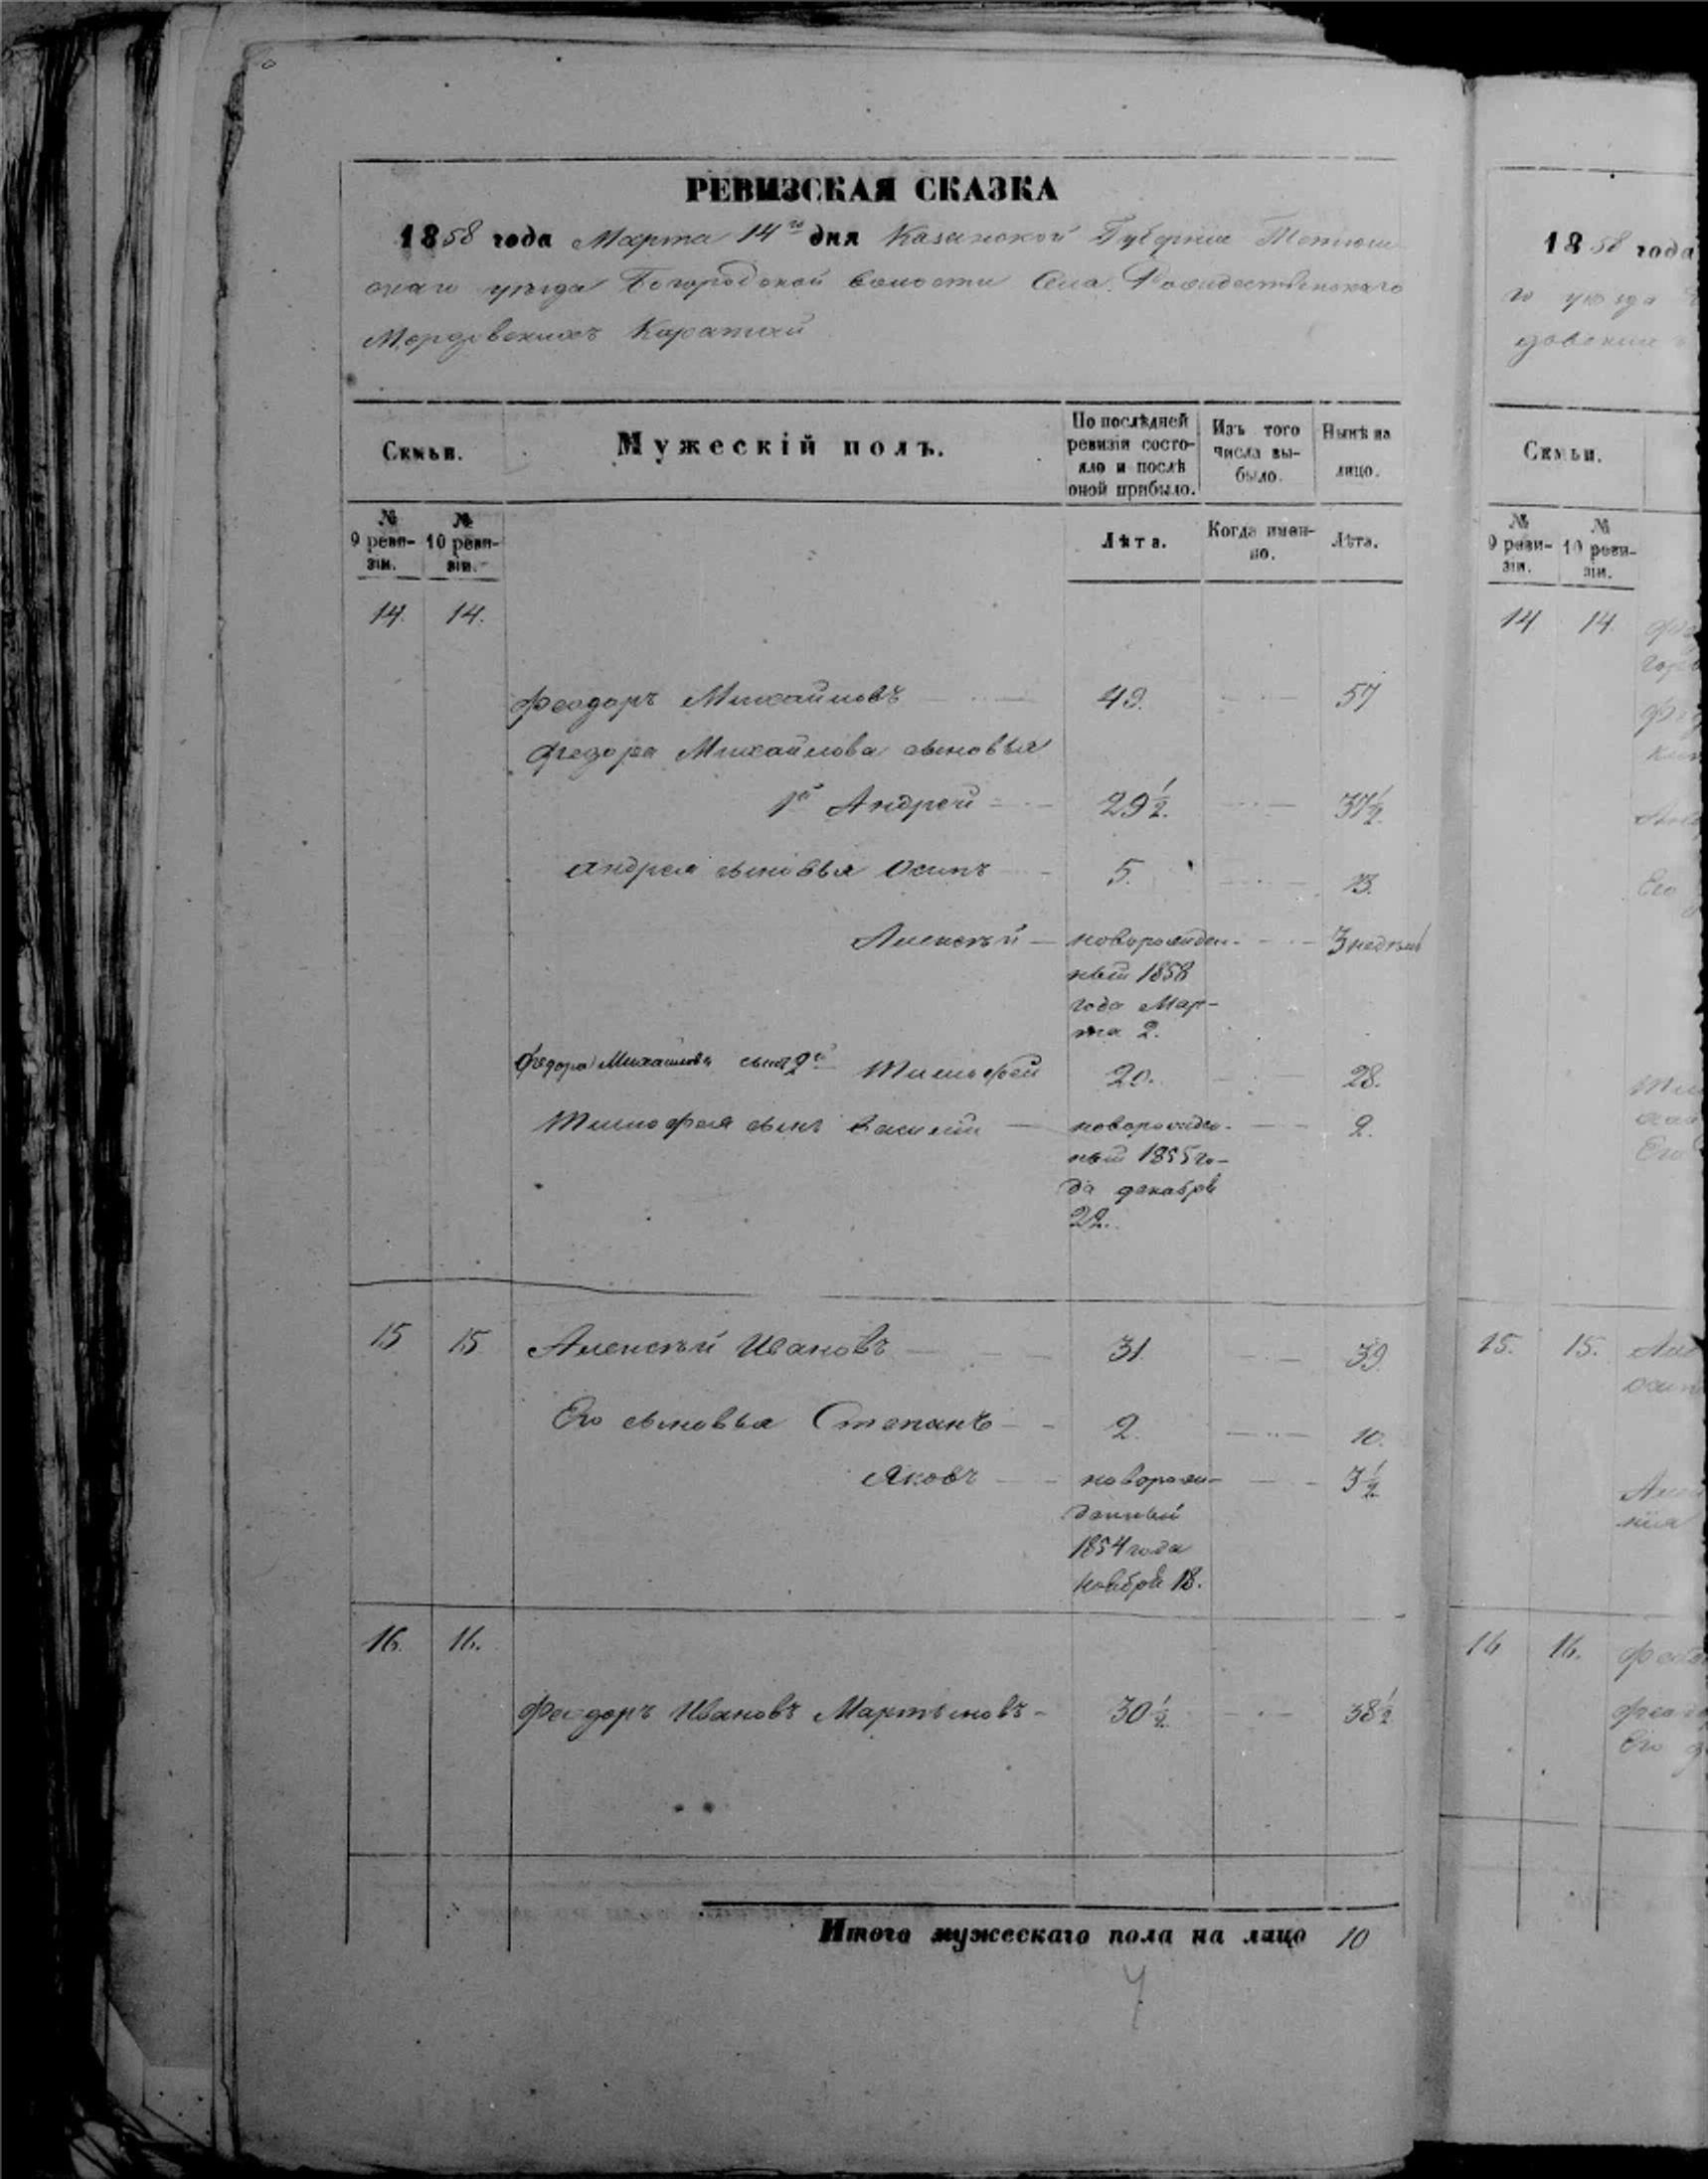 РЕВИЗСКАЯ СКАЗКА
1858 года Марта 14го дня Казанской Губернии Тетюш
скаго уезда Богородской волости Села Рождественскаго
Мордовских Каратай
Семьи.
Мужескій полъ.
По послѣдней ревизіи состо-
яло и послѣ
оной прибыло.
Изъ того
числа вы-
было.
Нынѣ на
лицо.
№
9 реви-
зіи.
№
10 реви-
зіи.
Лѣта.
Когда имен-
но.
Лѣта.
14. 14.
Феодоръ Михайловъ 49. 57
Федора Михайлова сыновья
1й Андрей 29½. 37½.
Андрея сыновья Осипъ 5. 13.
Алексѣй новорожден- 3 недѣль
ный 1858
года Мар-
та 2.
Федора Михайлова сынъ 2й Тимофей 20. 28.
Тимофея сынъ Василій новорожден- 2.
ный 1855 го-
да декабря
22.
15 15 Алексѣй Ивановъ 31. 39.
Его сыновья Степанъ 2. 10.
Яковъ новорож- 3½
денный
1854 года
Ноября 18.
16. 16.
Феодоръ Ивановъ Мартыновъ 30½. 38½
Итого мужескаго пола на лицо 10
1858 года
го уезда
Семьи.
№
9 реви-
зіи.
№
10 реви-
зіи.
14 14.
Его
15. 15.
16 16.
Его